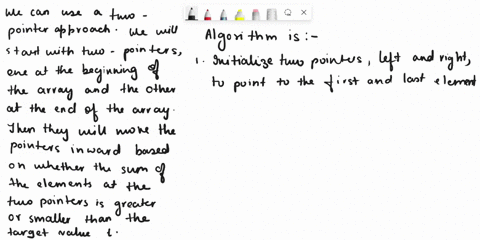 We can use a two-
pointer approach. We will
start with two-pointers,
one at the beginning of
the array and the other
at the end of the array.
Then they will move the
pointers inward based
on whether the sum of
the elements at the
two pointers is greater
or smaller than the
target value t.
Algorithm is :-
1. Initialize two pointers, left and right,
to point to the first and last element